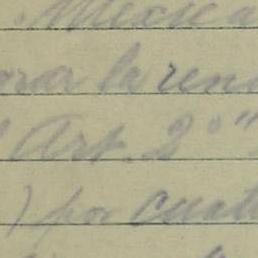 Mexica
ora la ren
Art. 2º "
) por cuatr